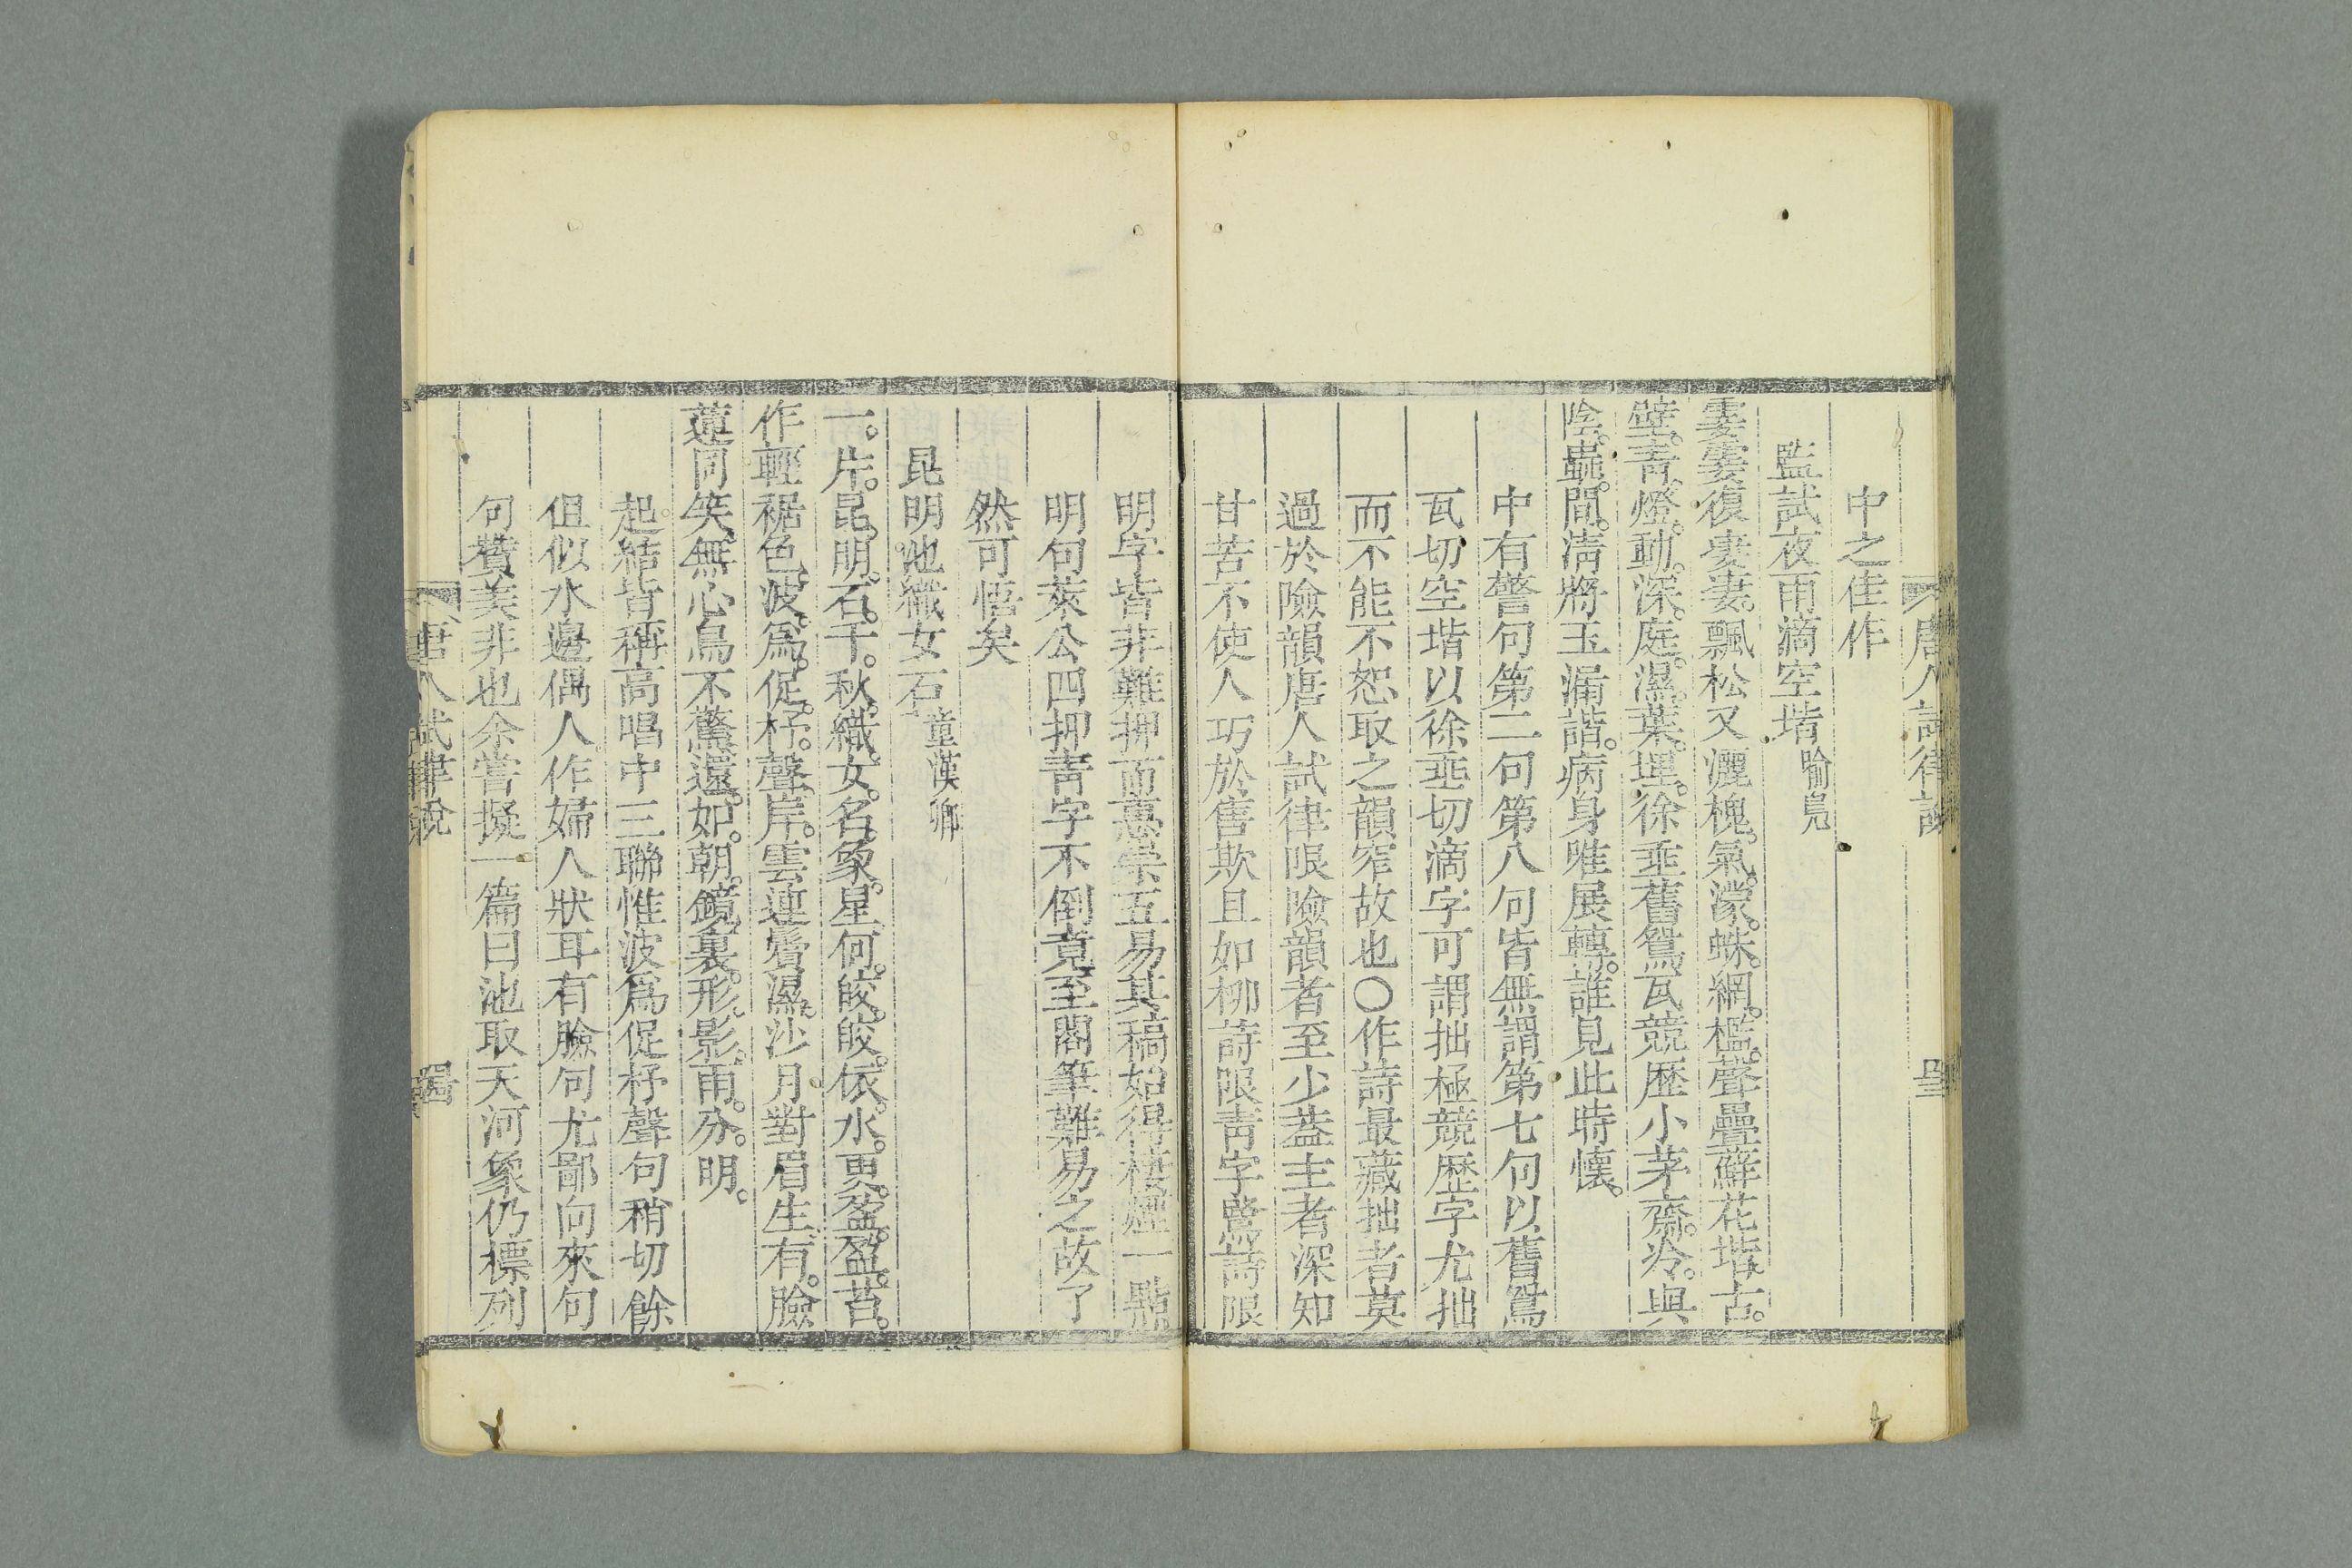 唐人試律說
中之佳作
監試夜雨滴空堦喻鳧
霎霎復淒淒飄松又灑槐氣濛蛛網檻聲疊蘚花堦古
壁靑燈動深庭濕葉埋徐垂舊鴛瓦競歷小茅齋冷與
陰蟲間淸將玉漏諧病身唯展轉誰見此時懷
中有警句第二句第八句皆無謂第七句以舊鴛
瓦切空堦以徐垂切滴字可謂拙極競歷字尤拙
而不能不恕取之韻窄故也〇作詩最藏拙者莫
過於險韻唐人試律限險韻者至少蓋主者深知
甘苦不使人巧於售欺且如柳詩限靑字鷺詩限
明字皆非難押而惠崇五易其稿始得棲煙一點
明句萊公四押靑字不倒竟至閣筆難易之故了
然可悟矣
昆明池織女石童漢卿
一片昆明石千秋織女名象星何皎皎依水更盈盈苔
作輕裾色波爲促杼聲岸雲連鬢濕沙月對眉生有臉
蓮同笑無心鳥不驚還如朝鏡裏形影兩分明
起結皆稱高唱中三聯惟波爲促杼聲句稍切餘
但似水邊偶人作婦人狀耳有臉句尤鄙向來句
句贊美非也余嘗擬一篇曰池取天河象仍標列
唐人試律說